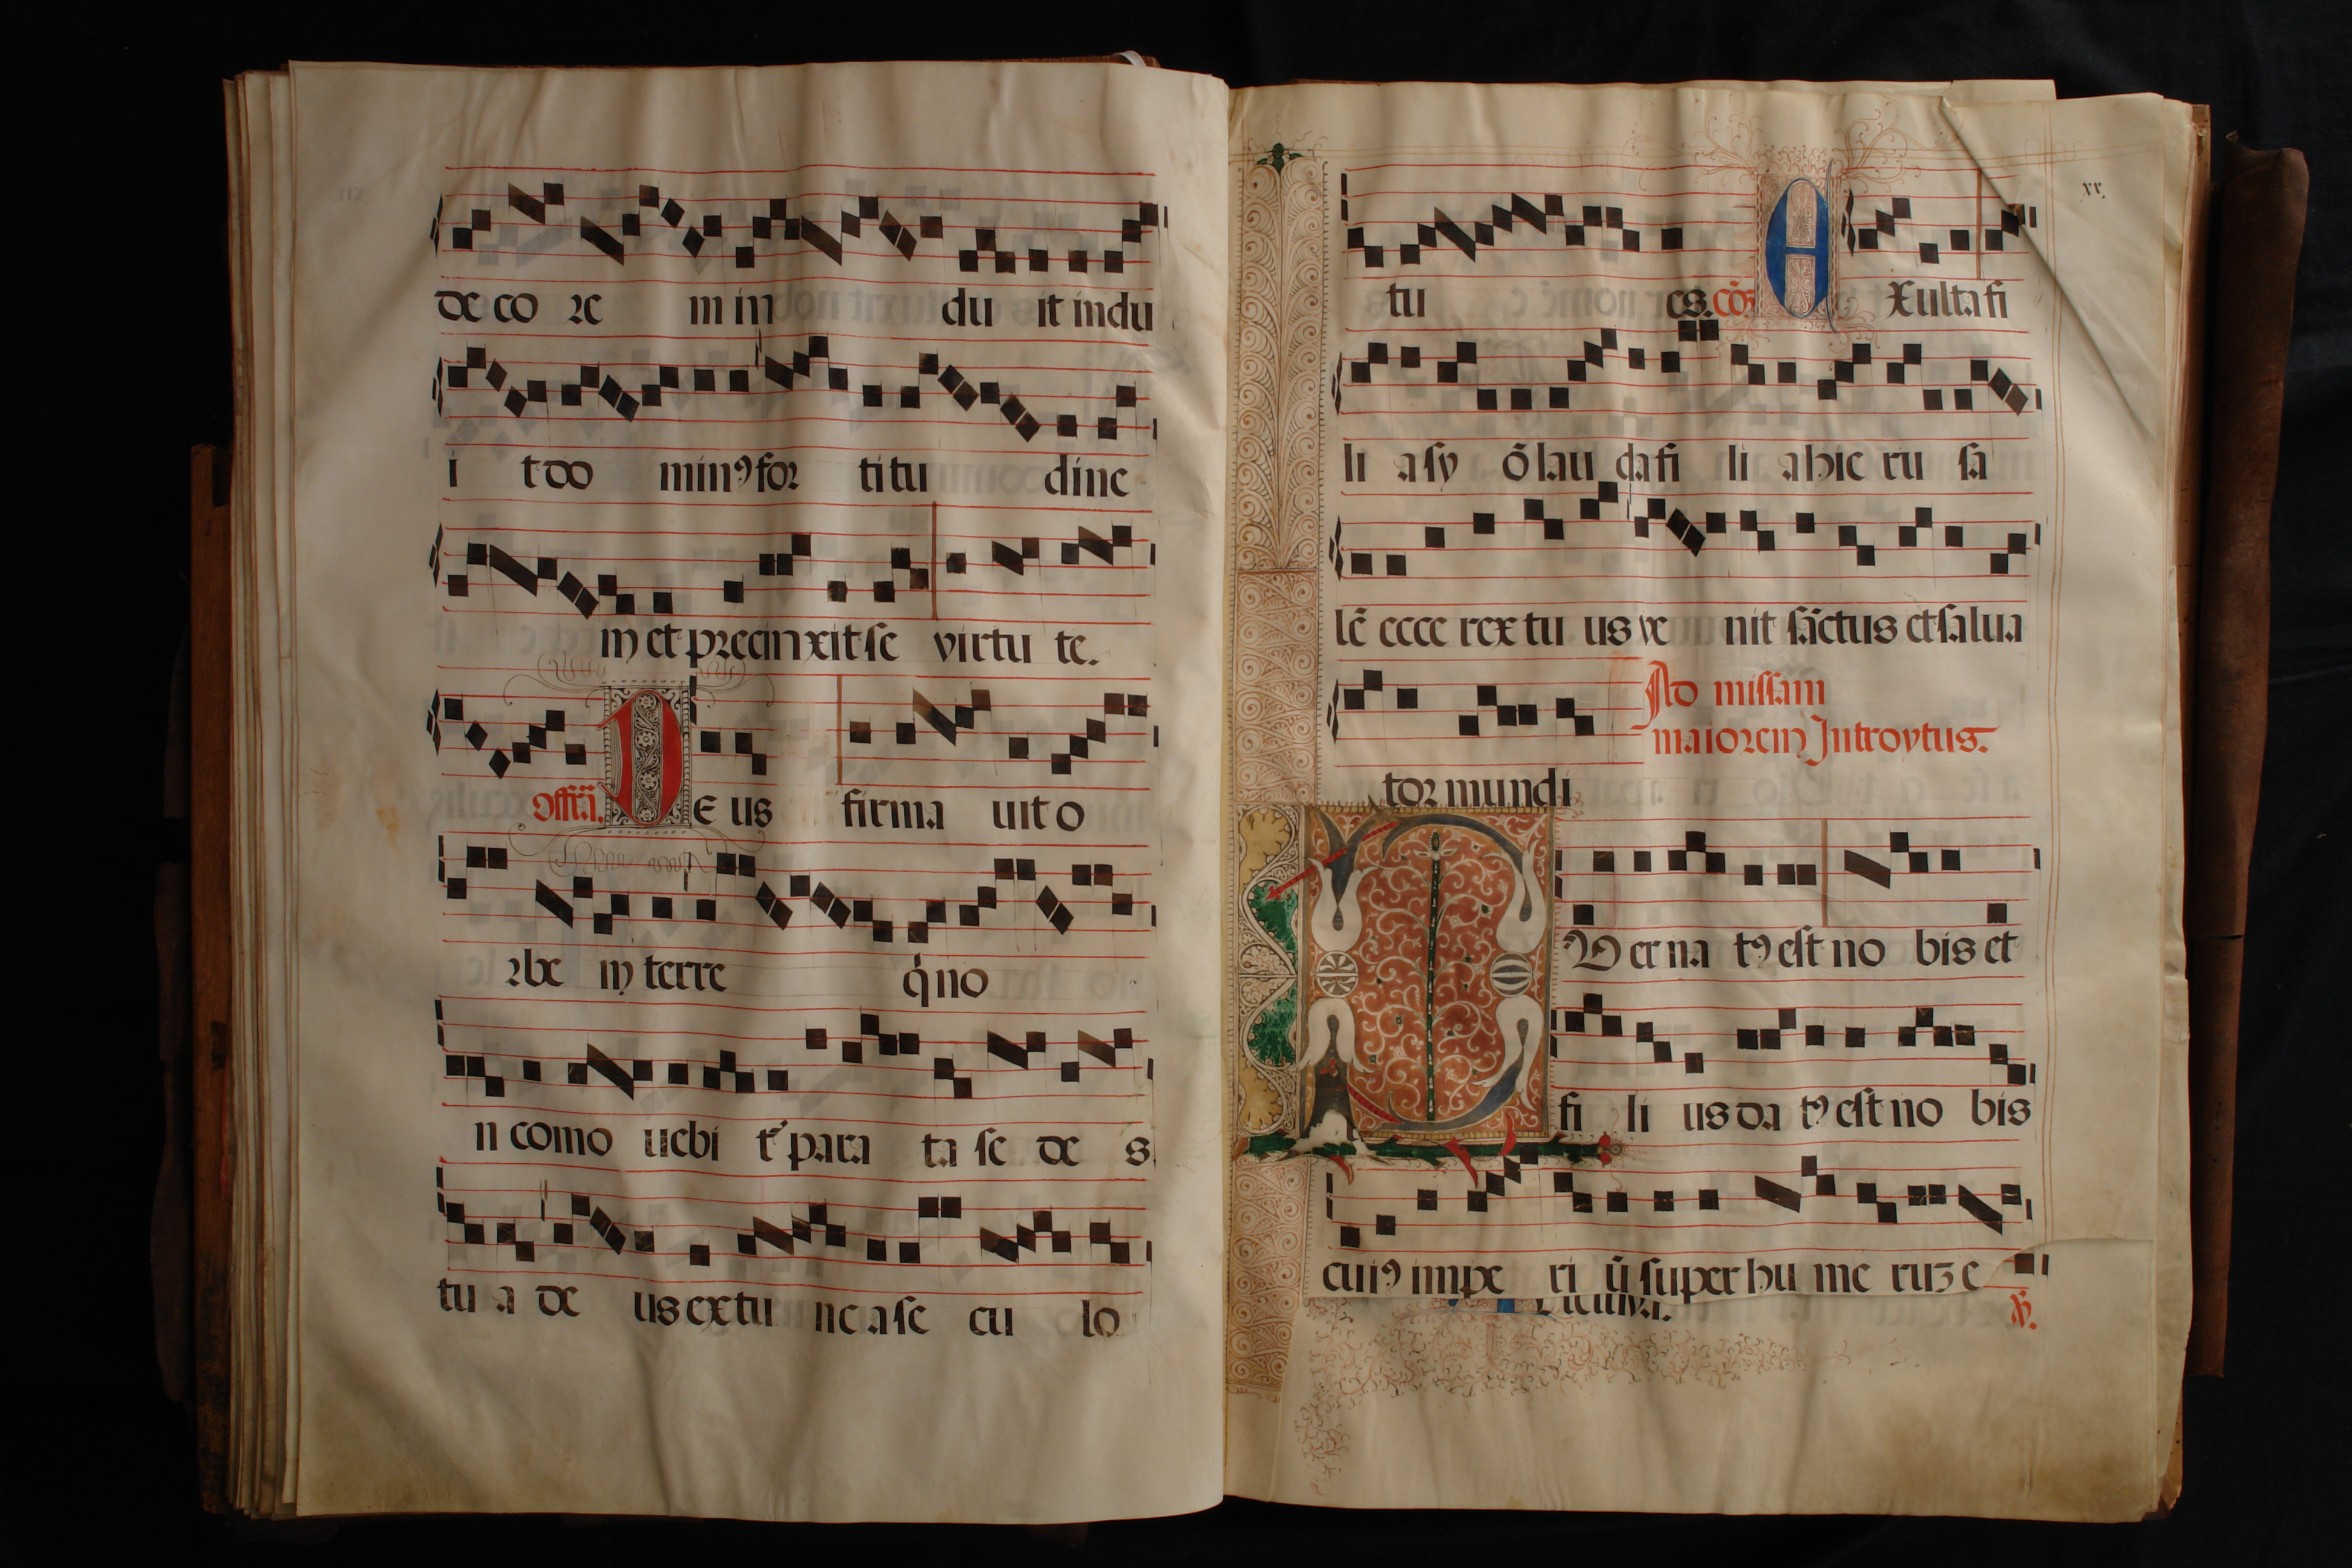 de co re m in du it indu
i t do minꝰ for titu dine
m et precinxit se virtu te.
Offr̃a. D E us firma uit o
rbe m terre q̇ no
n como uebi t᷑ para ta se de s
tu a de us ex tu nc a se cu lo
xx.
tu es. cõ. E Xulta fi
li a sy õ lau da fi li a hie ru sa
lẽ ecce rex tu us ve nit sãctus et salua
tor mundi
Ad missam
maiorem Introytus.
P V er na tꝰ est no bis et
fi li us da tꝰ est no bis
cuiꝰ impe ri ũ super hu me ruz e